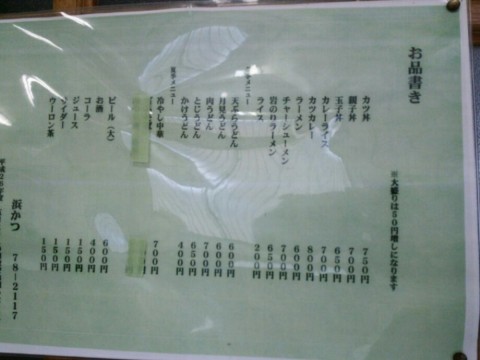 お品書き
※大盛りは50円増しになります
カツ丼 750円
親子丼 700円
玉子丼 650円
カレーライス 700円
カツカレー 800円
ラーメン 600円
チャーシューメン 700円
岩のりラーメン 650円
ライス 200円
メニュー
天ぷらうどん 600円
月見うどん 600円
肉うどん 700円
とじうどん 650円
かけうどん 400円
夏季メニュー
冷やし中華 700円
ビール(大) 600円
お酒 400円
コーラ 150円
ジュース 150円
サイダー 150円
ウーロン茶 150円
浜かつ 78-2117
平成25年